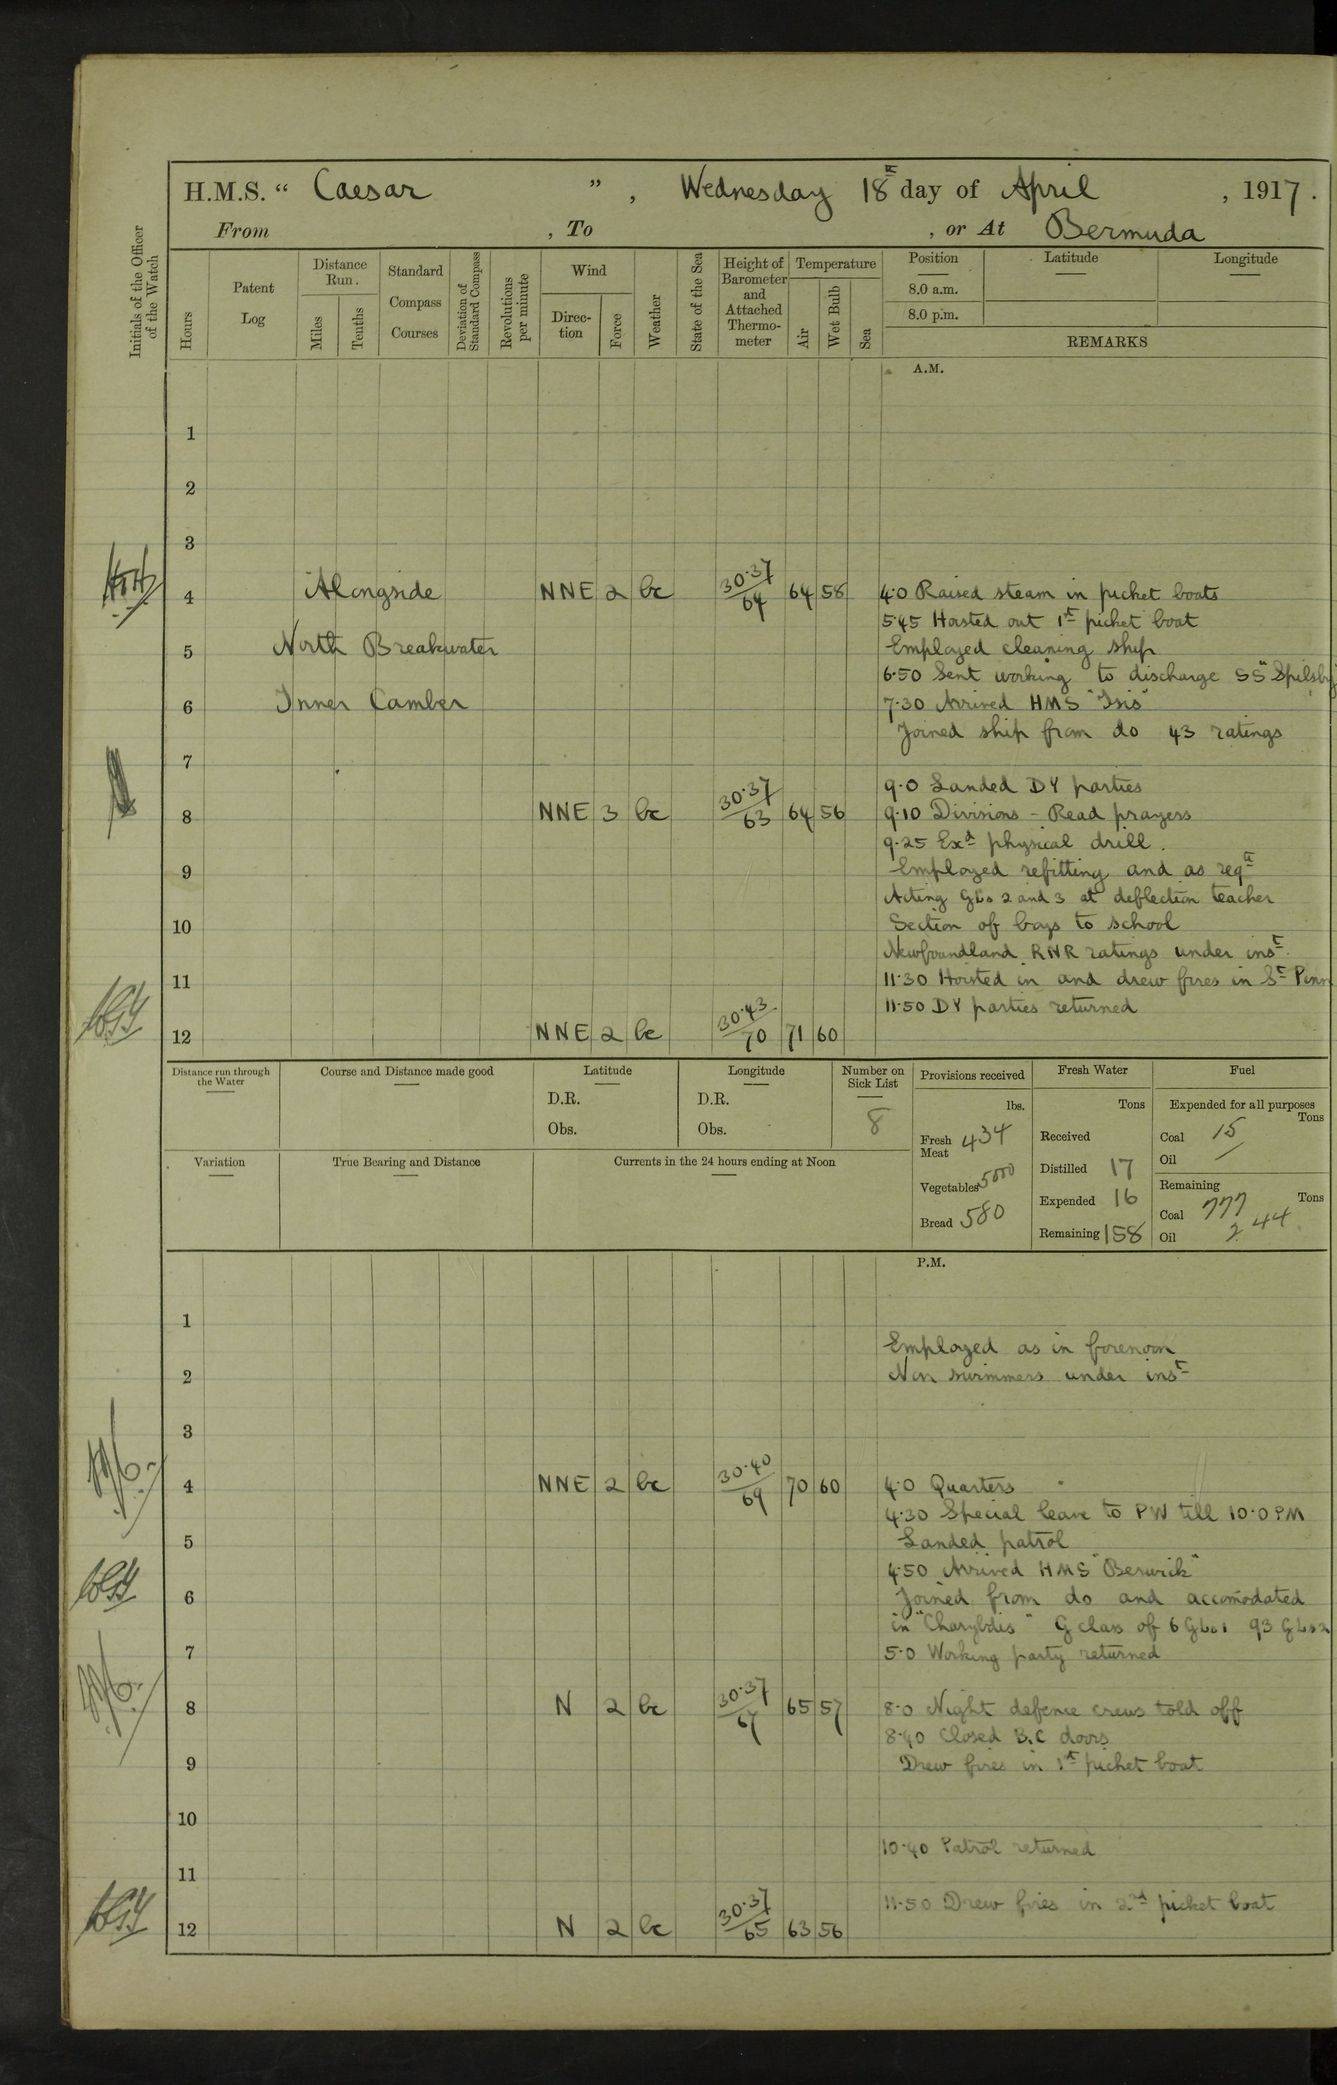 H.M.S. “ Caesar ”, Wednesday 18th day of April, 1917.
From , To , or At Bermuda
Initials of the Officer of the Watch
Hours
Patent Log
Distance Run.
Miles
Tenths
Standard Compass Courses
Deviation of Standard Compass
Revolutions per minute
Wind
Direction
Force
Weather
State of the Sea
Height of Barometer and Attached Thermometer
Temperature
Air
Wet Bulb
Sea
Position
Latitude
Longitude
8.0 a.m.
8.0 p.m.
REMARKS
A.M.
1
2
3
4 Alongside NNE 2 bc 30.37/64 64 58 4.0 Raised steam in picket boats
5.45 Hoisted out 1st picket boat
5 North Breakwater Employed cleaning ship
6.50 Sent working to discharge SS "Spilsby
6 Inner Camber 7.30 Arrived HMS "Isis"
Joined ship from do 43 ratings
7
9.0 Landed DY parties
8 NNE 3 bc 30.37/63 64 56 9.10 Divisions - Read prayers
9.25 Exd physical drill.
9 Employed refitting and as reqd
Acting GLs 2 and 3 at deflection teacher
10 Section of boys to school
Newfoundland RNR ratings under inst.
11 11.30 Hoisted in and drew fires in St Pinn
11.50 DY parties returned
12 NNE 2 bc 30.43/70 71 60
Distance run through the Water
Course and Distance made good
Latitude
D.R.
Obs.
Longitude
D.R.
Obs.
Number on Sick List
8
Provisions received
lbs.
Fresh Meat 434
Vegetables 5000
Bread 580
Fresh Water
Tons
Received
Distilled 17
Expended 16
Remaining 158
Fuel
Expended for all purposes
Tons
Coal 15
Oil
Remaining
Tons
Coal 777
Oil 244
Variation
True Bearing and Distance
Currents in the 24 hours ending at Noon
P.M.
1
Employed as in forenoon
2 Non swimmers under inst
3
4 NNE 2 bc 30.40/69 70 60 4.0 Quarters
4.30 Special leave to PW till 10.0 PM
5 Landed patrol
4.50 Arrived HMS "Berwick"
6 Joined from do and accomodated
in "Charybdis" G class of 6 GLs 1 93 GLs 2
7 5.0 Working party returned
8 N 2 bc 30.37/67 65 57 8.0 Night defence crews told off
8.40 Closed B.C doors
9 Drew fires in 1st picket boat
10
10.40 Patrol returned
11
11.50 Drew fires in 2nd picket boat
12 N 2 bc 30.37/65 63 56